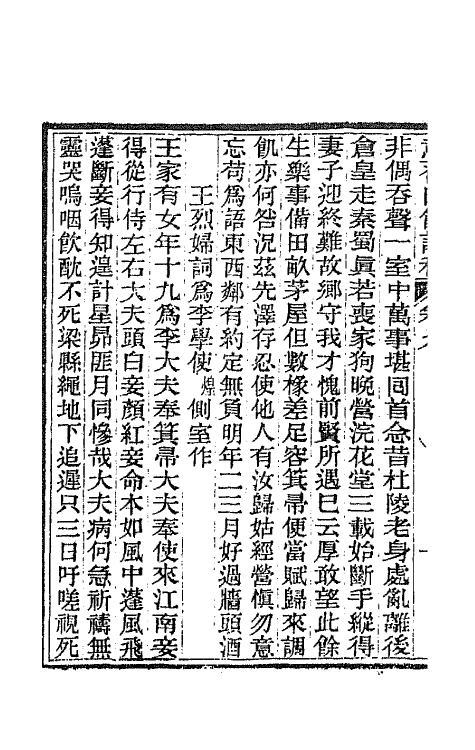 非偶吞聲一室中萬事堪回首念昔杜陵老身處亂離後
倉皇走秦蜀眞若喪家狗晚營浣花堂三載始斷手縱得
妻子迎終難故鄉守我才愧前賢所遇巳云厚敢望此餘
生樂事備田畝茅屋但數椽差足容箕帚便當賦歸來調
飢亦何咎況茲先澤存忍使他人有汝歸姑經營愼勿意
忘苟爲語東西鄰有約定無負明年二三月好過牆頭酒
王烈婦詞爲李學使煌側室作
王家有女年十九爲李大夫奉箕帚大夫奉使來江南妾
得從行侍左右大夫頭白妾顏紅妾命本如風中蓬風飛
蓬斷妾得知遑計星昴匪月同慘哉大夫病何急祈禱無
靈哭嗚咽飲酖不死梁縣繩地下追遲只三日吁嗟視死